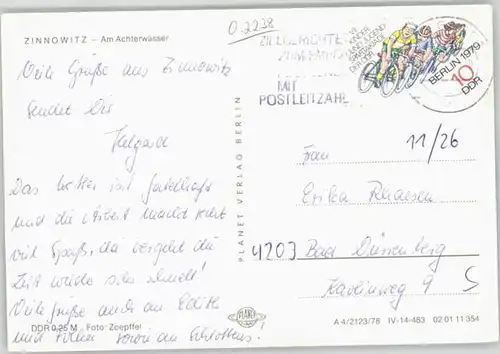 0-2238
ZINNOWITZ – Am Achterwasser
Viele Grüße aus Zinnowitz
sendet Dir
Das Wetter ist fabelhaft
und die Arbeit macht sehr
viel Spaß, da vergeht die
Zeit wieder sehr schnell!
Viele Grüße auch an Edith
und
DDR 0,25 M · Foto: Zeepffel
PLANET VERLAG BERLIN
PLANET
MIT
POSTLEITZAHL
VII.
KINDER
UND JUGEND
SPARTAKIADE
DER DDR
BERLIN 1979
10
DDR
11/26
Frau
Erika
4203 Bad Dürrenberg
Karlinweg 9
5
A-4/2123/78 IV-14-483 02 01 11 354